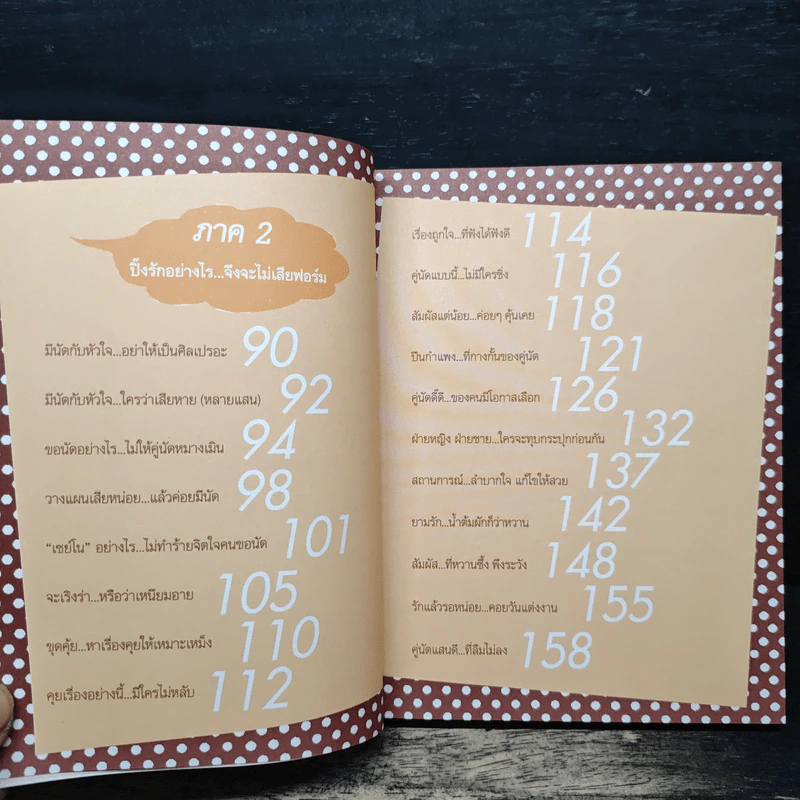 ภาค 2
ปิ๊งรักอย่างไร...จึงจะไม่เสียฟอร์ม
มีนัดกับหัวใจ...อย่าให้เป็นศิลเปรอะ 90
มีนัดกับหัวใจ...ใครว่าเสียหาย (หลายแสน) 92
ขอนัดอย่างไร...ไม่ให้คู่นัดหมางเมิน 94
วางแผนเสียหน่อย...แล้วค่อยมีนัด 98
“เซย์โน” อย่างไร...ไม่ทำร้ายจิตใจคนขอนัด 101
จะเริงร่า...หรือว่าเหนียมอาย 105
ขุดคุ้ย...หาเรื่องคุยให้เหมาะเหม็ง 110
คุยเรื่องอย่างนี้...มีใครไม่หลับ 112
เรื่องถูกใจ...ที่ฟังได้ฟังดี 114
คู่นัดแบบนี้...ไม่มีใครซิ่ง 116
สัมผัสแต่น้อย...ค่อยๆ คุ้นเคย 118
ปีนกำแพง...ที่กางกั้นของคู่นัด 121
คู่นัดดี๊ดี...ของคนมีโอกาสเลือก 126
ฝ่ายหญิง ฝ่ายชาย...ใครจะทุบกระปุกก่อนกัน 132
สถานการณ์...ลำบากใจ แก้ไขให้สวย 137
ยามรัก...น้ำต้มผักก็ว่าหวาน 142
สัมผัส...ที่หวานซึ้ง พึงระวัง 148
รักแล้วรอหน่อย...คอยวันแต่งงาน 155
คู่นัดแสนดี...ที่ลืมไม่ลง 158